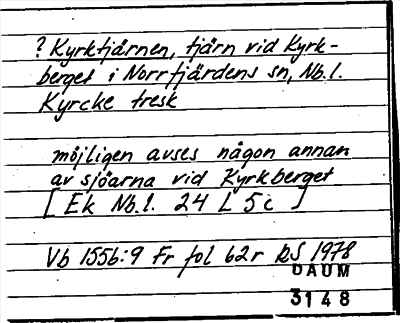 ? Kyrktjärnen, tjärn vid Kyrk-
berget i Norrfjärdens sn, Nb.l.
Kyrcke tresk
möjligen avses någon annan
av sjöarna vid Kyrkberget
[ Ek Nb.l. 24 L 5c ]
Vb 1556:9 Fr fol 62r BS 1978
DAUM
3148